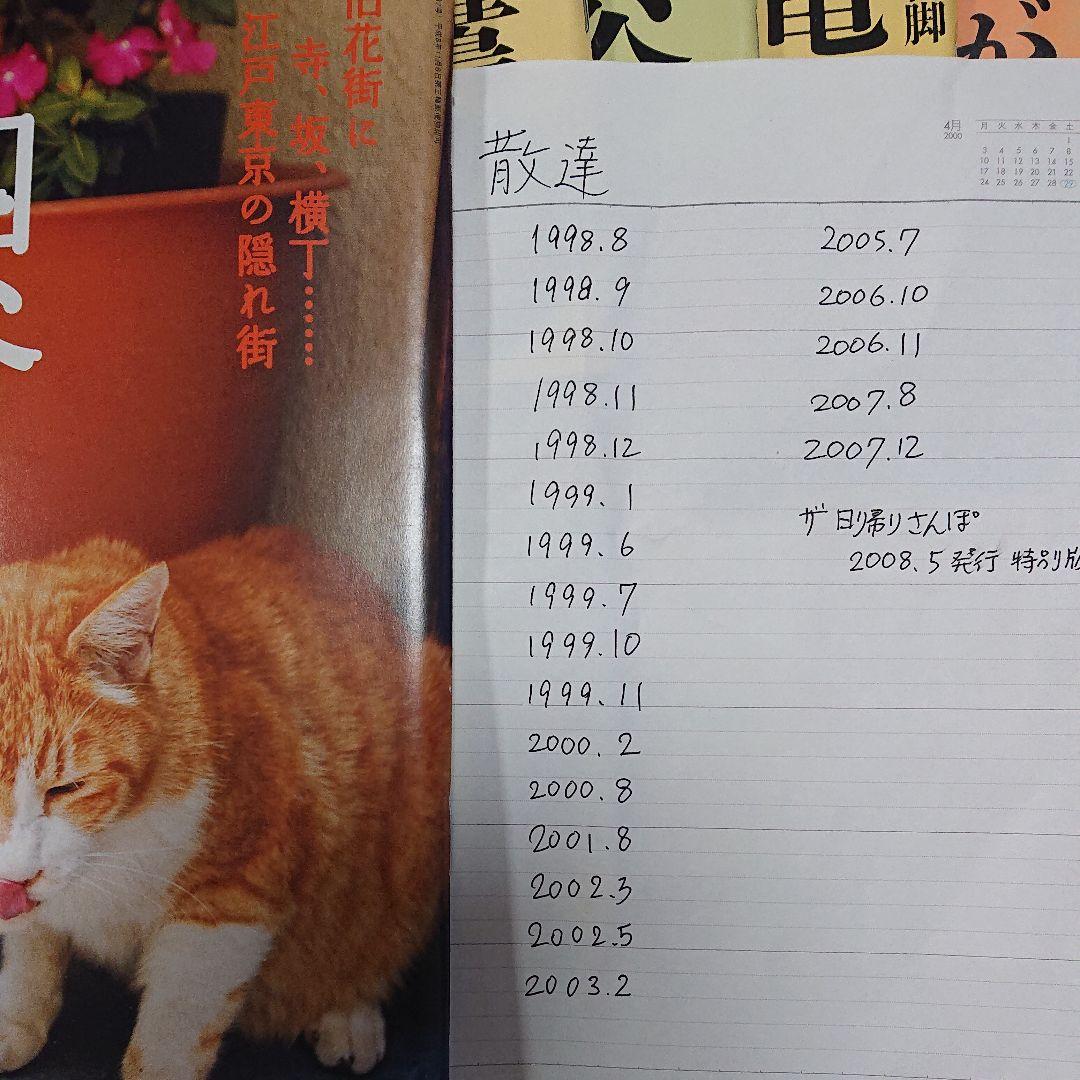 旧花街に
寺、坂、横丁……
江戸東京の隠れ街
脚
が
散達
4月
2000
月 火 水 木 金 土
1
3 4 5 6 7 8
10 11 12 13 14 15
17 18 19 20 21 22
24 25 26 27 28 29
1998.8
1998.9
1998.10
1998.11
1998.12
1999.1
1999.6
1999.7
1999.10
1999.11
2000.2
2000.8
2001.8
2002.3
2002.5
2003.2
2005.7
2006.10
2006.11
2007.8
2007.12
ザ 日帰りさんぽ
2008.5発行 特別版